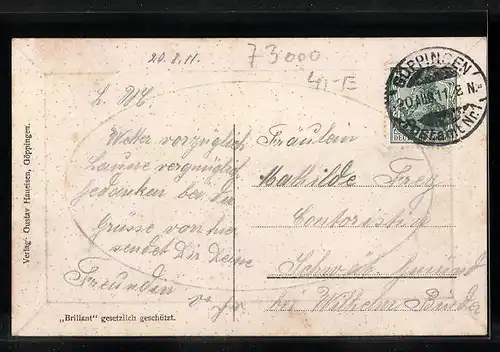 20.8.11.
73000
41-E
GÖPPINGEN
20.AUG.11. 8 N.
L. M!
Wetter vorzüglich
Laune vergnüglich
Gedanken bei dir
Grüsse von hier
sendet Dir Deine
Freundin
Fräulein
Mathilde Frey
Contoristin
Schwäb. Gmünd
bei Wilhelm Binder
Verlag: Gustav Haneisen, Göppingen.
„Brillant“ gesetzlich geschützt.